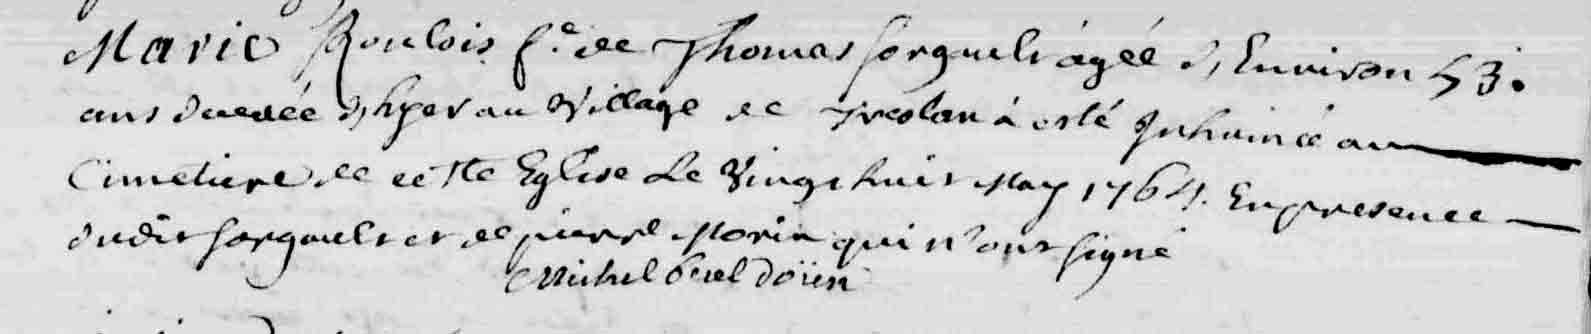 Marie Roulois fe. de Thomas Sorgnult agée d'Environ 53.
ans decedée d'hyer au Village de à esté Inhumée au
Cimetiere de cette Eglise Le Vingt huit May 1764. En presence
dudit Sorgnult et de pierre Morin qui n'ont signé
Michel doïen